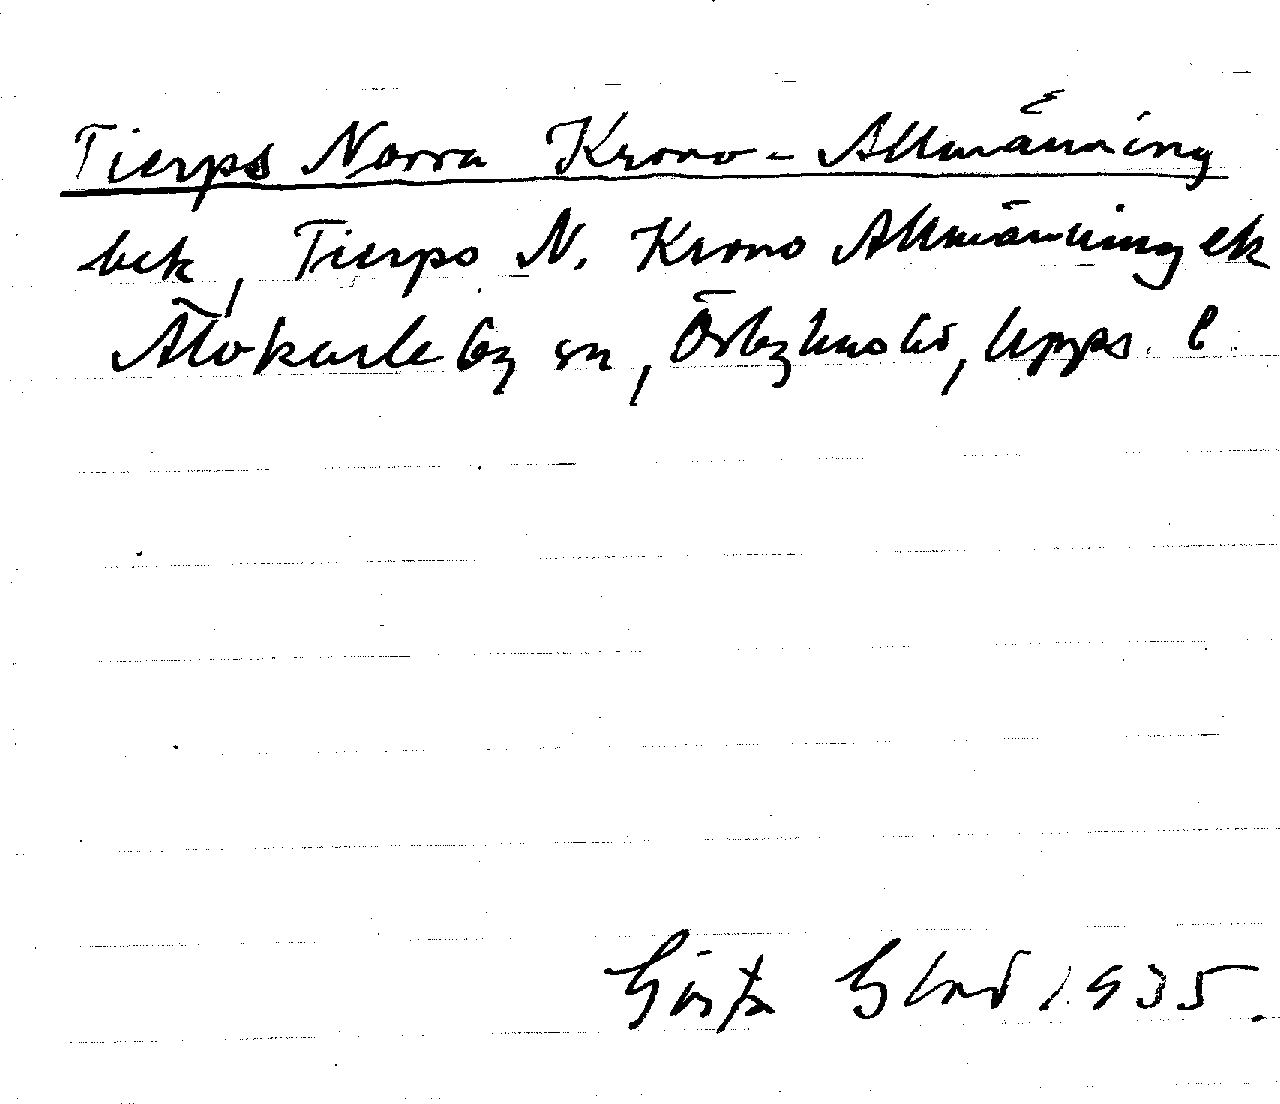 Tierps Norra Krono-Allmänning
bek, Tierps N. Krono Allmänning ek
Älvkarleby sn, Örbyhus hd, Upps. l.
Gösta Blad 1935.